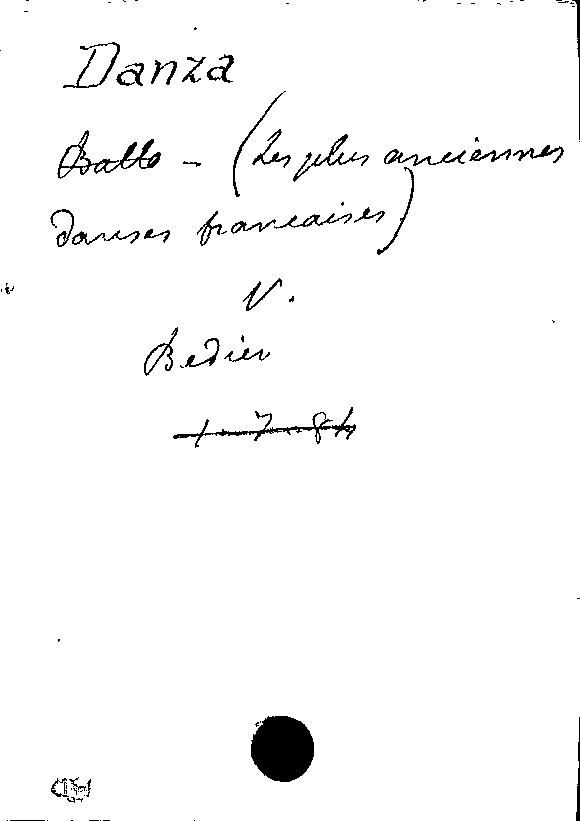 Danza
Ballo - (Les plus anciennes
danses francaises)
V.
Bedier